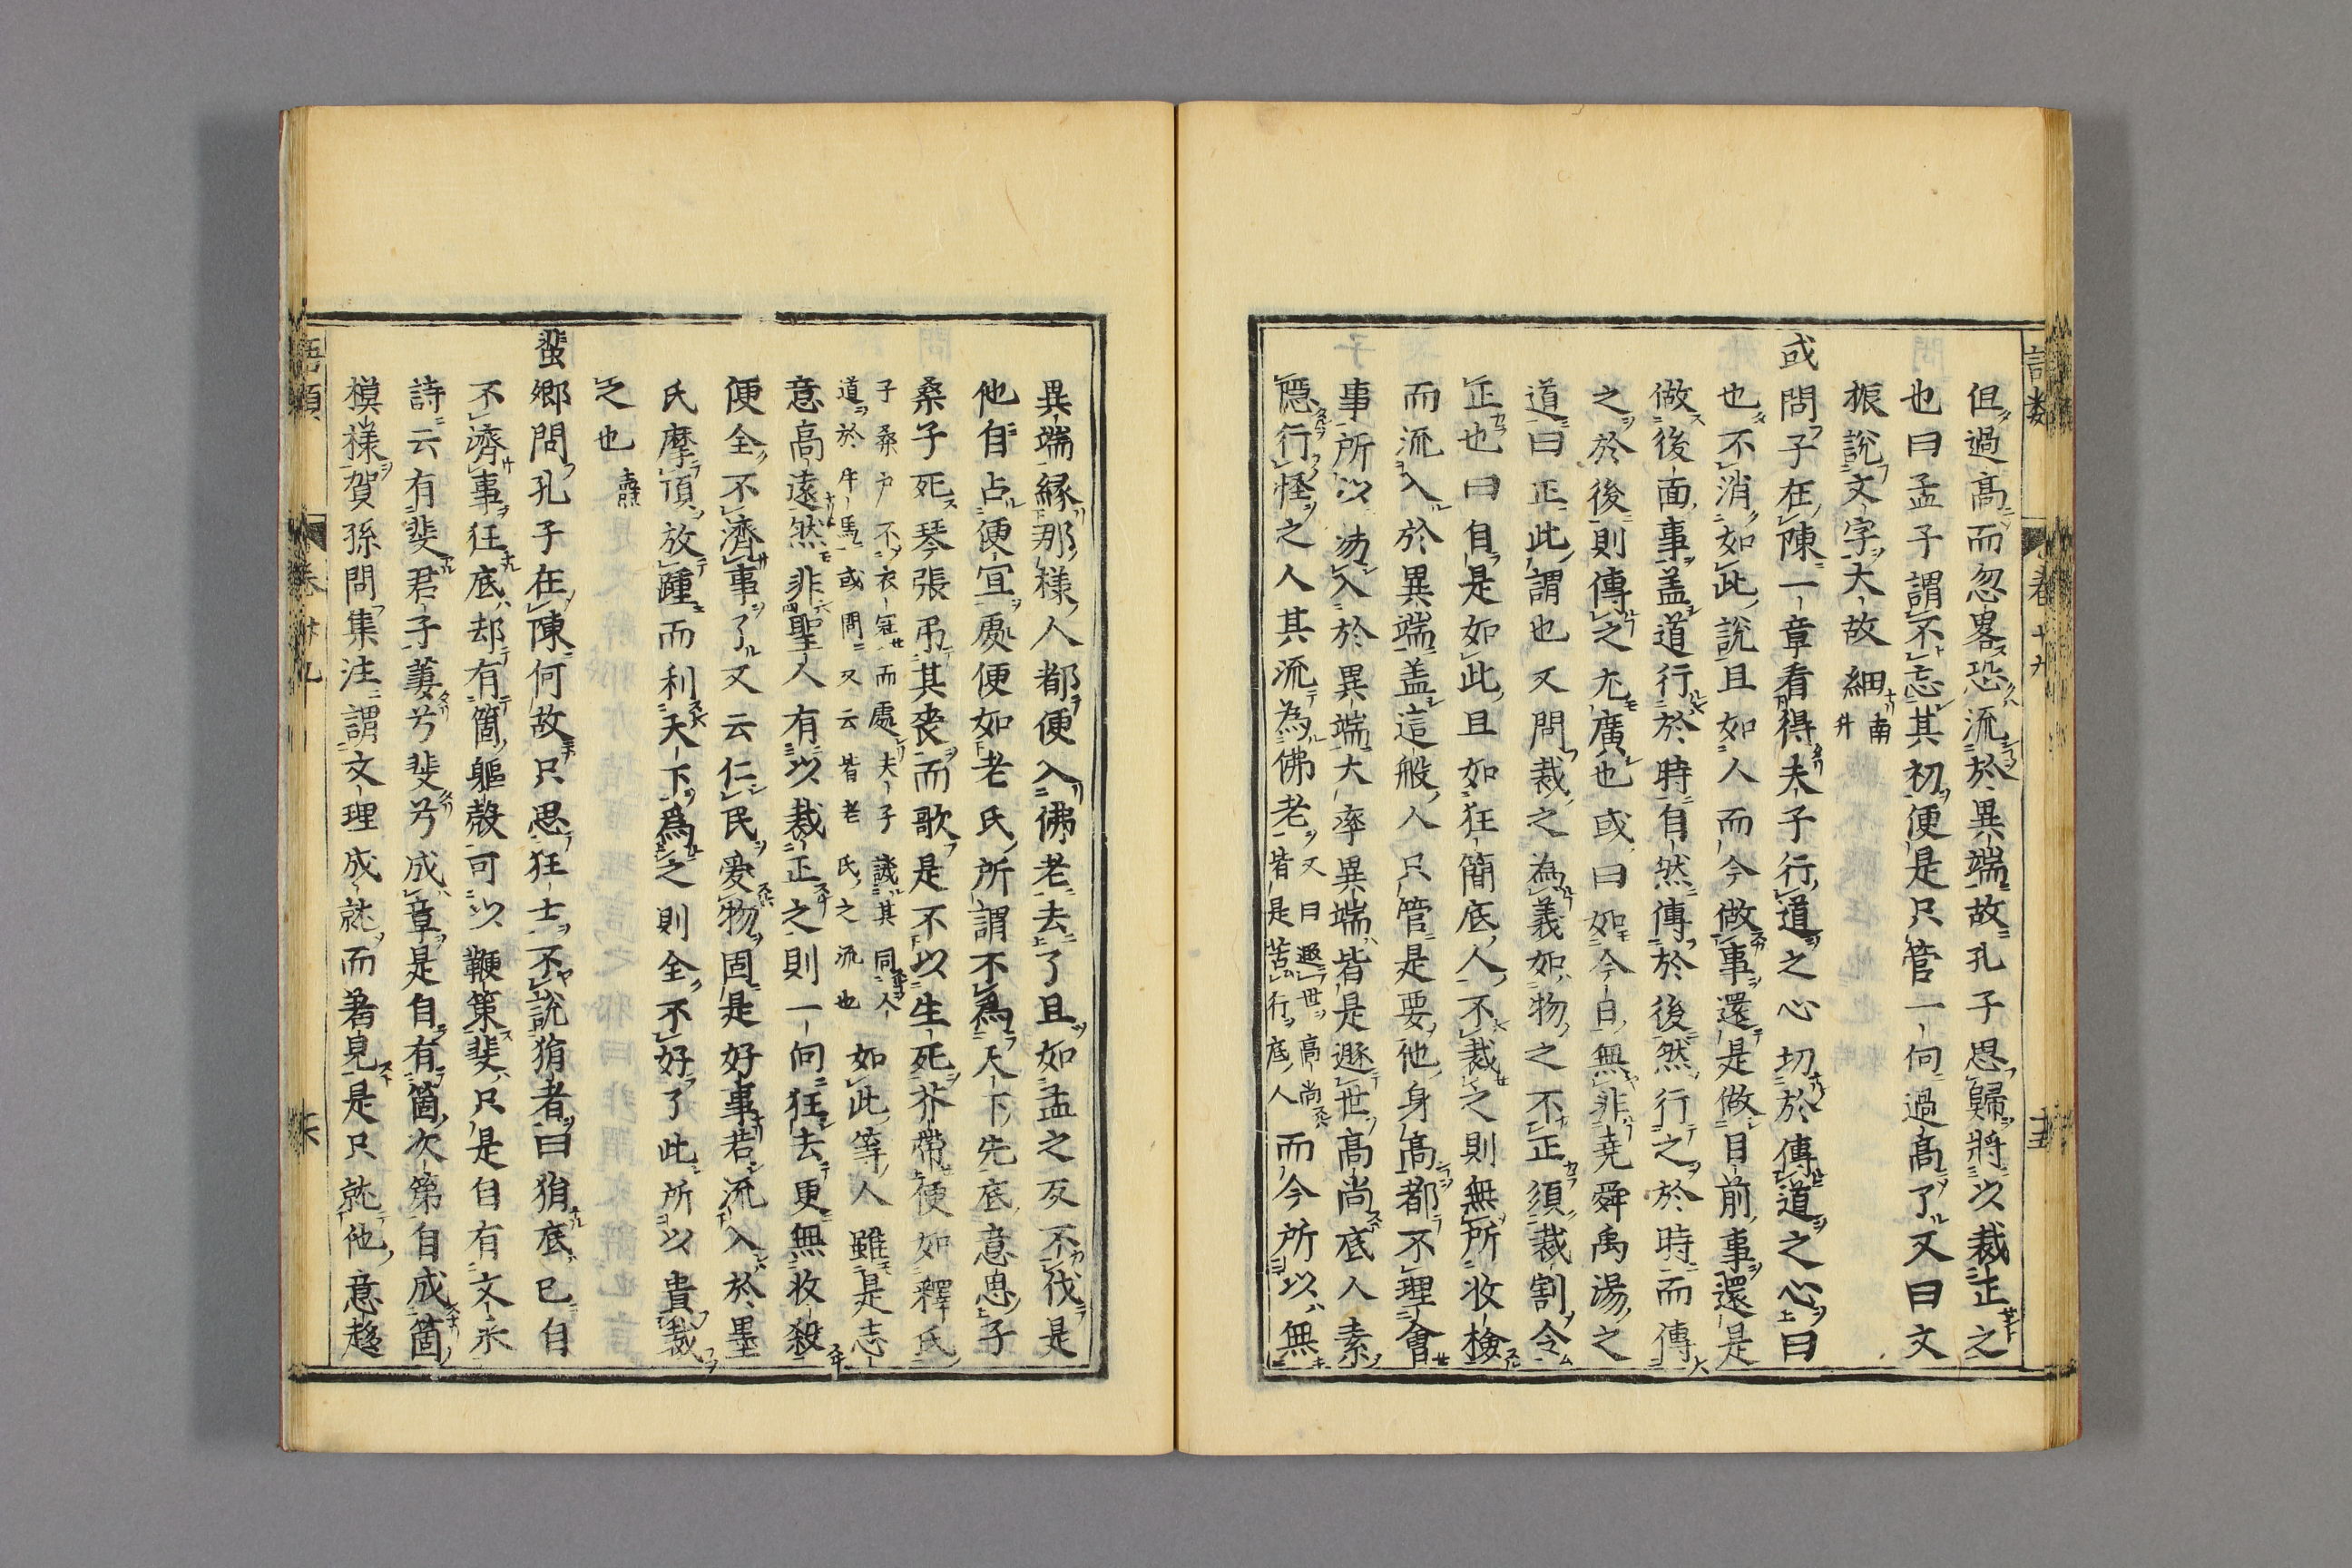 語類 卷二十九 十五
但過高而忽畧恐流於異端故孔子思歸將以裁正之
也曰孟子謂不忘其初便是只管一向過高了又曰文
振說文字大故細 南升
或問子在陳一章看得夫子行道之心切於傳道之心曰
也不消如此說且如人而今做事還是做目前事還是
做後面事盖道行於時自然傳於後然行之於時而傳
之於後則傳之尤廣也或曰如今日無非堯舜禹湯之
道曰正此謂也又問裁之為義如物之不正須裁割令
正也曰自是如此且如狂簡底人不裁之則無所收檢
而流入於異端盖這般人只管是要他身高都不理會
事所以易入於異端大率異端皆是遯世高尚底人素
隱行怪之人其流為佛老 又曰遯世高尚皆是苦行底人 而今所以無
異端緣那様人都便入佛老去了且如孟之反不伐是
他自占便宜處便如老氏所謂不為天下先底意思子
桑子死琴張弔其喪而歌是不以生死芥帶便如釋氏
子桑戶不衣冠而處夫子譏其同人道於牛馬或問又云皆老氏之流也 如此等人雖是志
意高遠然非聖人有以裁正之則一向狂去更無收殺
便全不濟事了又云仁民爱物固是好事若流入於墨
氏摩頂放踵而利天下為之則全不好了此所以貴裁
之也 燾
蜚卿問孔子在陳何故只思狂士不說狷者曰狷底已自
不濟事狂底却有箇軀殼可以鞭策斐只是自有文采
詩云有斐君子萋兮斐兮成章是自有箇次第自成箇
模様賀孫問集注謂文理成就而著見是只就他意趍
語類 卷廿九